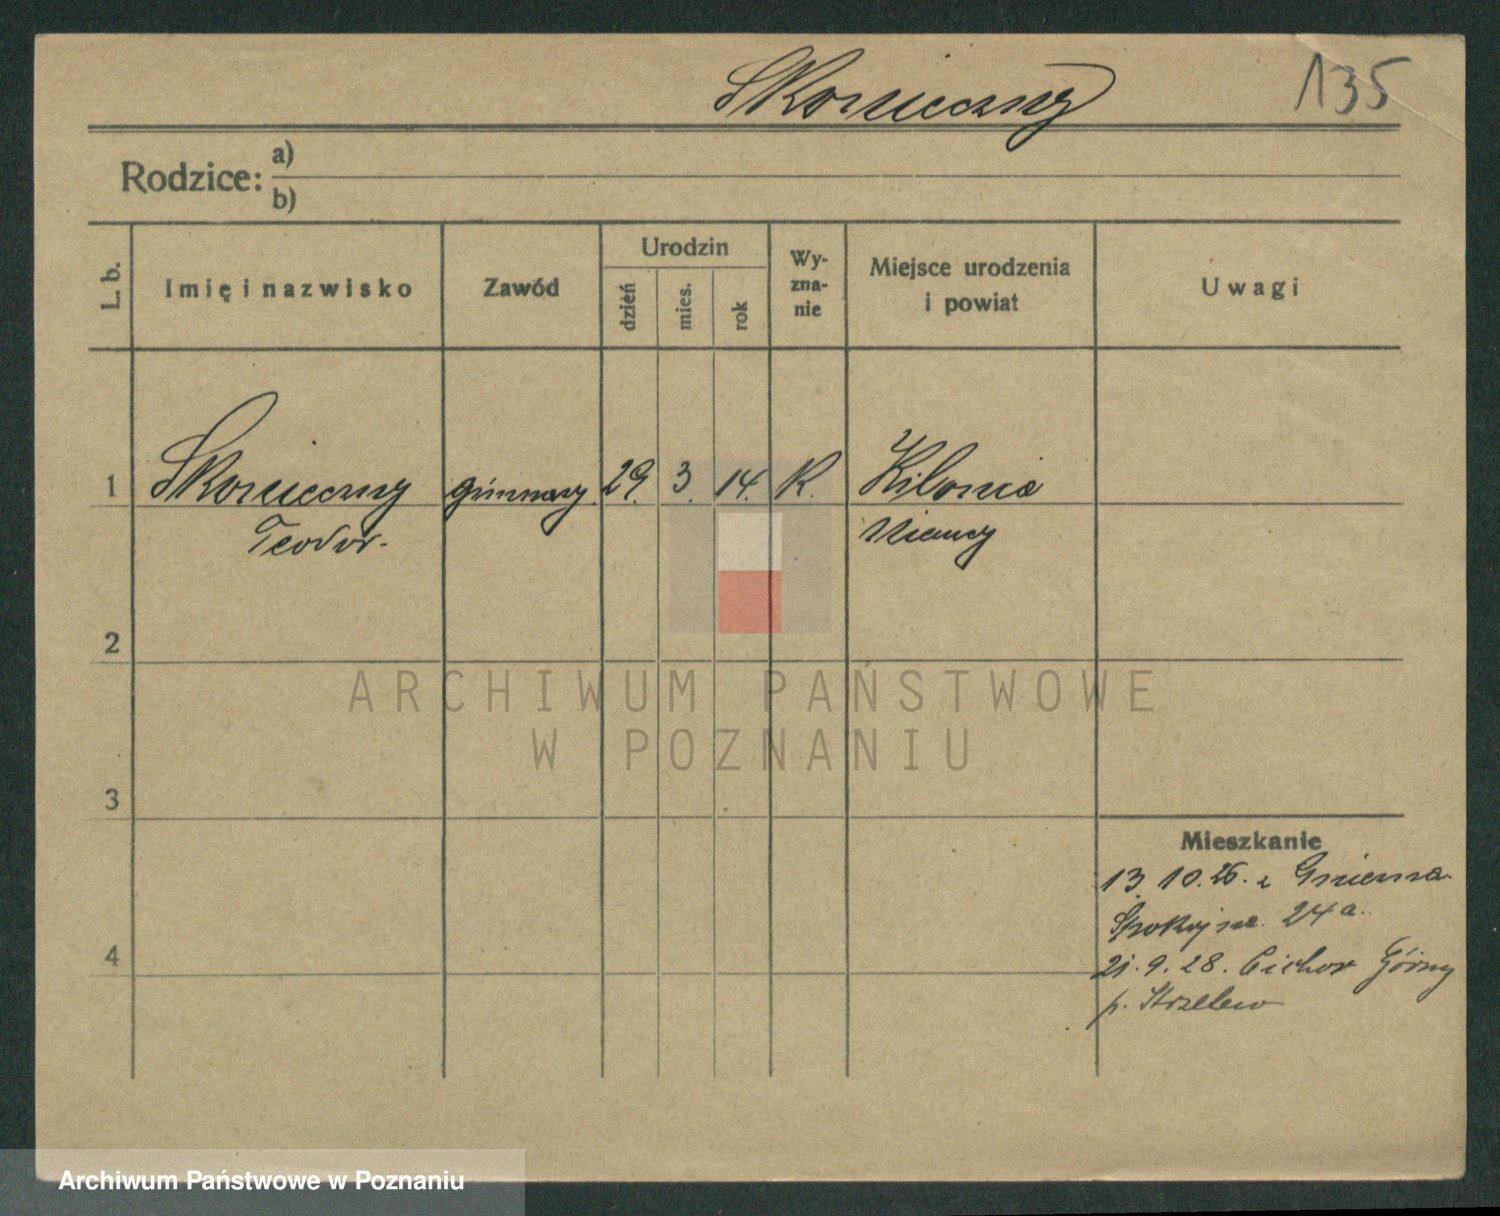 Skonieczny
135
Rodzice:
a)
b)
L. b.
Imię i nazwisko
Zawód
Urodzin
dzień
mies.
rok
Wy-
zna-
nie
Miejsce urodzenia
i powiat
Uwagi
1 Skonieczny 29. 3. 14. K. Kilonia
Teodor. Niemcy
2
3
4
Mieszkanie
13 10. 26. z Gniezna.
Spokojna 24 a.
21. 9. 28. Cichor Górny
p. Strzelewo
ARCHIWUM PAŃSTWOWE
W POZNANIU
Archiwum Państwowe w Poznaniu